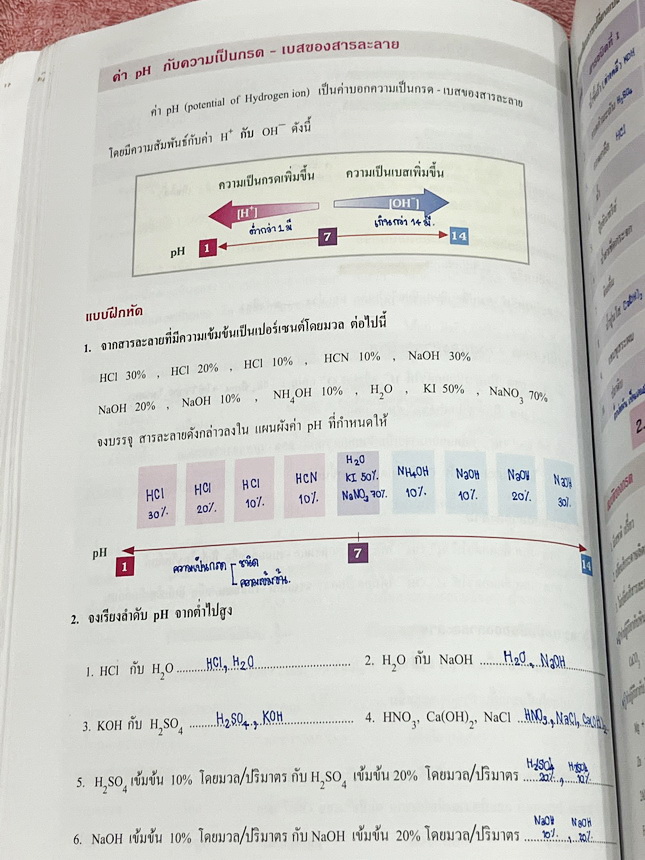 ค่า pH กับความเป็นกรด - เบสของสารละลาย
ค่า pH (potential of Hydrogen ion) เป็นค่าบอกความเป็นกรด - เบสของสารละลาย
โดยมีความสัมพันธ์กับค่า H⁺ กับ OH⁻ ดังนี้
ความเป็นกรดเพิ่มขึ้น ความเป็นเบสเพิ่มขึ้น
[H⁺] [OH⁻]
ต่ำกว่า 1 มี เกินกว่า 14 มี.
pH 1 7 14
แบบฝึกหัด
1. จากสารละลายที่มีความเข้มข้นเป็นเปอร์เซนต์โดยมวล ต่อไปนี้
HCl 30% , HCl 20% , HCl 10% , HCN 10% , NaOH 30%
NaOH 20% , NaOH 10% , NH₄OH 10% , H₂O , KI 50% , NaNO₃ 70%
จงบรรจุ สารละลายดังกล่าวลงใน แผนผังค่า pH ที่กำหนดให้
HCl 30% HCl 20% HCl 10% HCN 10% H₂O KI 50% NaNO₃ 70% NH₄OH 10% NaOH 10% NaOH 20% NaOH 30%
pH 1 7 14
ความเป็นกรด ชนิด
ความเข้มข้น.
2. จงเรียงลำดับ pH จากต่ำไปสูง
1. HCl กับ H₂O HCl, H₂O 2. H₂O กับ NaOH H₂O, NaOH
3. KOH กับ H₂SO₄ H₂SO₄, KOH 4. HNO₃, Ca(OH)₂, NaCl HNO₃, NaCl, Ca(OH)₂
5. H₂SO₄ เข้มข้น 10% โดยมวล/ปริมาตร กับ H₂SO₄ เข้มข้น 20% โดยมวล/ปริมาตร H₂SO₄ 20%, H₂SO₄ 10%
6. NaOH เข้มข้น 10% โดยมวล/ปริมาตร กับ NaOH เข้มข้น 20% โดยมวล/ปริมาตร NaOH 10%, NaOH 20%
KOH
H₂SO₄
HCl
2.